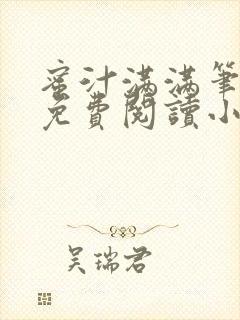 蜜汁满满笔
免費閱讀小
吴瑞君